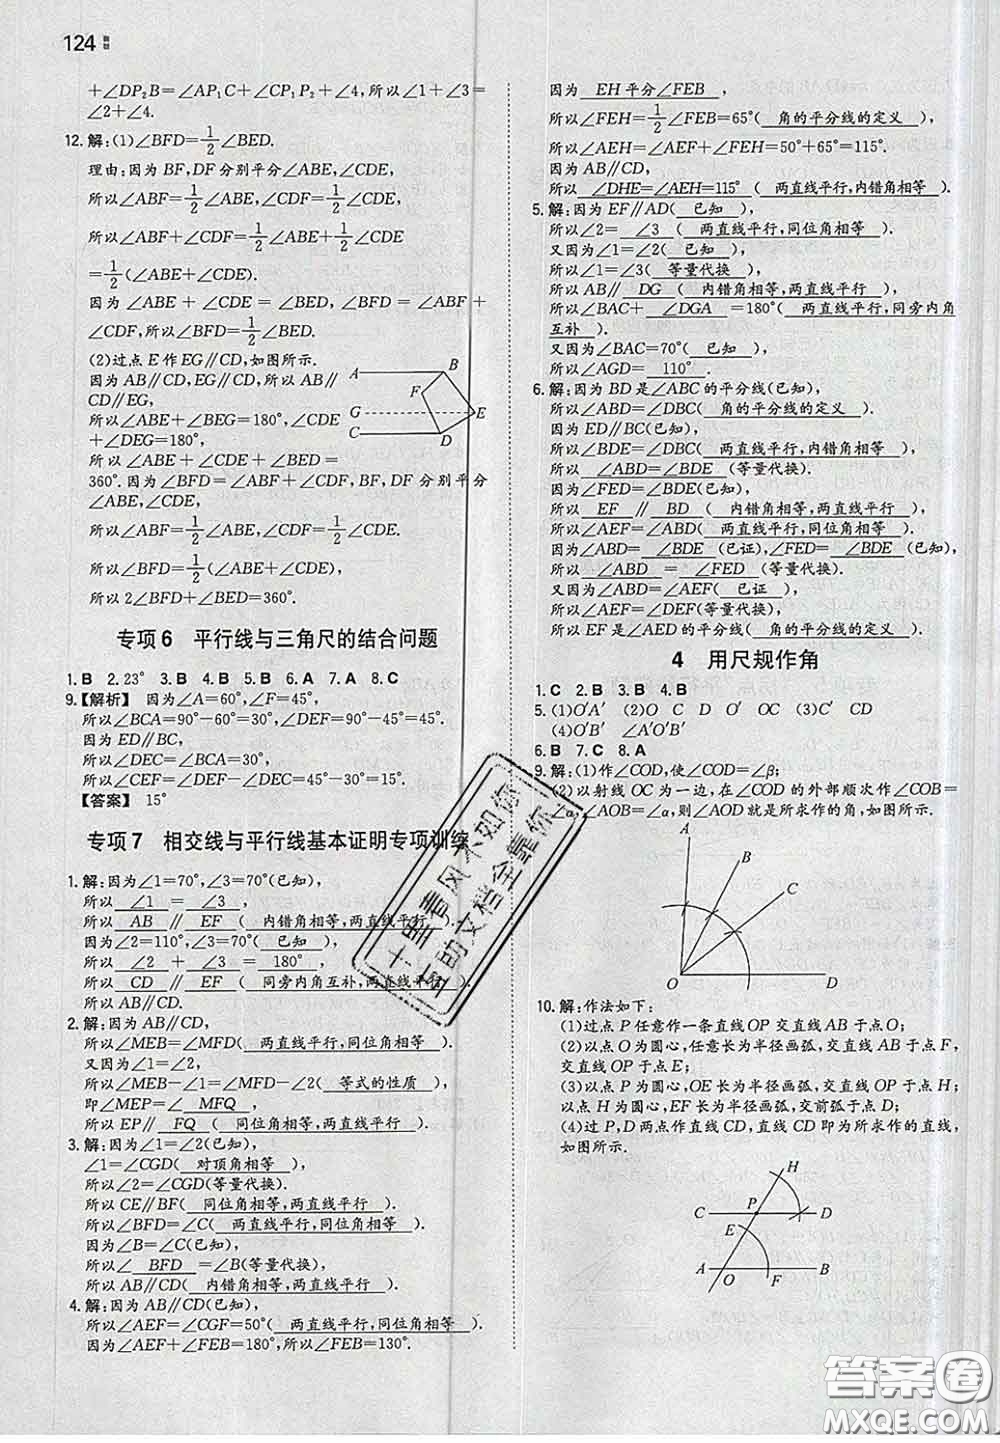 124
+∠DP₂B=∠AP₁C+∠CP₁P₂+∠4,所以∠1+∠3=
∠2+∠4.
12.解:(1)∠BFD=1/2∠BED.
理由:因为BF,DF分别平分∠ABE,∠CDE,
所以∠ABF=1/2∠ABE,∠CDF=1/2∠CDE,
所以∠ABF+∠CDF=1/2∠ABE+1/2∠CDE
=1/2(∠ABE+∠CDE).
因为∠ABE+∠CDE=∠BED,∠BFD=∠ABF+
∠CDF,所以∠BFD=1/2∠BED.
(2)过点E作EG∥CD,如图所示.
因为AB∥CD,EG∥CD,所以AB
∥CD∥EG,
所以∠ABE+∠BEG=180°,∠CDE
+∠DEG=180°,
所以∠ABE+∠BED+∠CDE=
360°.因为∠BFD=∠ABF+∠CDF,BF,DF分别平分
∠ABE,∠CDE,
所以∠ABF=1/2∠ABE,∠CDF=1/2∠CDE,
所以∠BFD=1/2(∠ABE+∠CDE),
所以2∠BFD+∠BED=360°.
A B F G E C D
专项6 平行线与三角尺的结合问题
1.B 2.23° 3.B 4.B 5.B 6.A 7.A 8.C
9.【解析】 因为∠A=60°,∠F=45°,
所以∠BCA=90°-60°=30°,∠DEF=90°-45°=45°.
因为ED∥BC,
所以∠DEC=∠BCA=30°,
所以∠CEF=∠DEF-∠DEC=45°-30°=15°.
【答案】 15°
专项7 相交线与平行线基本证明专项训练
1.解:因为∠1=70°,∠3=70°(已知),
所以 ∠1 = ∠3 ,
所以 AB ∥ EF ( 内错角相等,两直线平行 ).
因为∠2=110°,∠3=70°( 已知 ),
所以 ∠2 + ∠3 = 180° ,
所以 CD ∥ EF ( 同旁内角互补,两直线平行 ),
所以AB∥CD.
2.解:因为AB∥CD,
所以∠MEB=∠MFD( 两直线平行,同位角相等 ).
又因为∠1=∠2,
所以∠MEB-∠1=∠MFD-∠2( 等式的性质 ),
即∠MEP=∠ MFQ ,
所以EP∥ FQ ( 同位角相等,两直线平行 ).
3.解:因为∠1=∠2(已知),
∠1=∠CGD( 对顶角相等 ),
所以∠2=∠CGD(等量代换),
所以CE∥BF( 同位角相等,两直线平行 ),
所以∠BFD=∠C( 两直线平行,同位角相等 ).
因为∠B=∠C(已知),
所以∠ BFD =∠B(等量代换),
所以AB∥CD( 内错角相等,两直线平行 ).
4.解:因为AB∥CD(已知),
所以∠AEF=∠CGF=50°( 两直线平行,同位角相等 ).
因为∠AEF+∠FEB=180°,所以∠FEB=130°.
因为 EH平分∠FEB ,
所以∠FEH=1/2∠FEB=65°( 角的平分线的定义 ),
所以∠AEH=∠AEF+∠FEH=50°+65°=115°.
因为AB∥CD,
所以 ∠DHE=∠AEH=115° ( 两直线平行,内错角相等 ).
5.解:因为EF∥AD( 已知 ),
所以∠2= ∠3 ( 两直线平行,同位角相等 ).
又因为∠1=∠2( 已知 ),
所以∠1=∠3( 等量代换 ),
所以AB∥ DG ( 内错角相等,两直线平行 ),
所以∠BAC+ ∠DGA =180°( 两直线平行,同旁内角
互补 ).
又因为∠BAC=70°( 已知 ),
所以∠AGD= 110° .
6.解:因为BD是∠ABC的平分线(已知),
所以∠ABD=∠DBC( 角的平分线的定义 ).
因为ED∥BC(已知),
所以∠BDE=∠DBC( 两直线平行,内错角相等 ),
所以 ∠ABD=∠BDE (等量代换).
因为∠FED=∠BDE(已知),
所以 EF ∥ BD ( 内错角相等,两直线平行 ),
所以∠AEF=∠ABD( 两直线平行,同位角相等 ).
因为∠ABD= ∠BDE (已证),∠FED= ∠BDE (已知),
所以 ∠ABD = ∠FED (等量代换).
又因为∠ABD=∠AEF( 已证 ),
所以∠AEF=∠DEF(等量代换),
所以EF是∠AED的平分线(角的平分线的定义).
4 用尺规作角
1.C 2.B 3.B 4.B
5.(1)O′A′ (2)O C D OC (3)C′ CD
(4)O′B′ ∠A′O′B′
6.B 7.C 8.A
9.解:(1)作∠COD,使∠COD=∠β;
(2)以射线OC为一边,在∠COD的外部顺次作∠COB=
∠α,∠AOB=∠α,则∠AOD就是所求作的角,如图所示.
A B C O D
10.解:作法如下:
(1)过点P任意作一条直线OP交直线AB于点O;
(2)以点O为圆心,任意长为半径画弧,交直线AB于点F,
交直线OP于点E;
(3)以点P为圆心,OE长为半径画弧,交直线OP于点H;
以点H为圆心,EF长为半径画弧,交前弧于点D;
(4)过P,D两点作直线CD,直线CD即为所求作的直线,
如图所示.
H C P D E A O F B
十里青风不如你
互助文档全靠你
答案圈
MXQE.COM